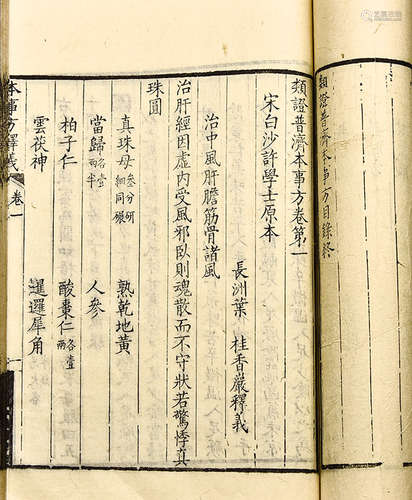 類證普濟本事方目錄終
類證普濟本事方卷第一
宋白沙許學士原本
長洲葉 桂香巖釋義
治中風肝膽筋骨諸風
治肝經因虛內受風邪臥則魂散而不守狀若驚悸真
珠圓
真珠母 叁分研細同碾 熟乾地黃
當歸 各壹兩半 人參
柏子仁 酸棗仁 各壹兩
雲茯神 暹邏犀角
本事方釋義 卷一 一